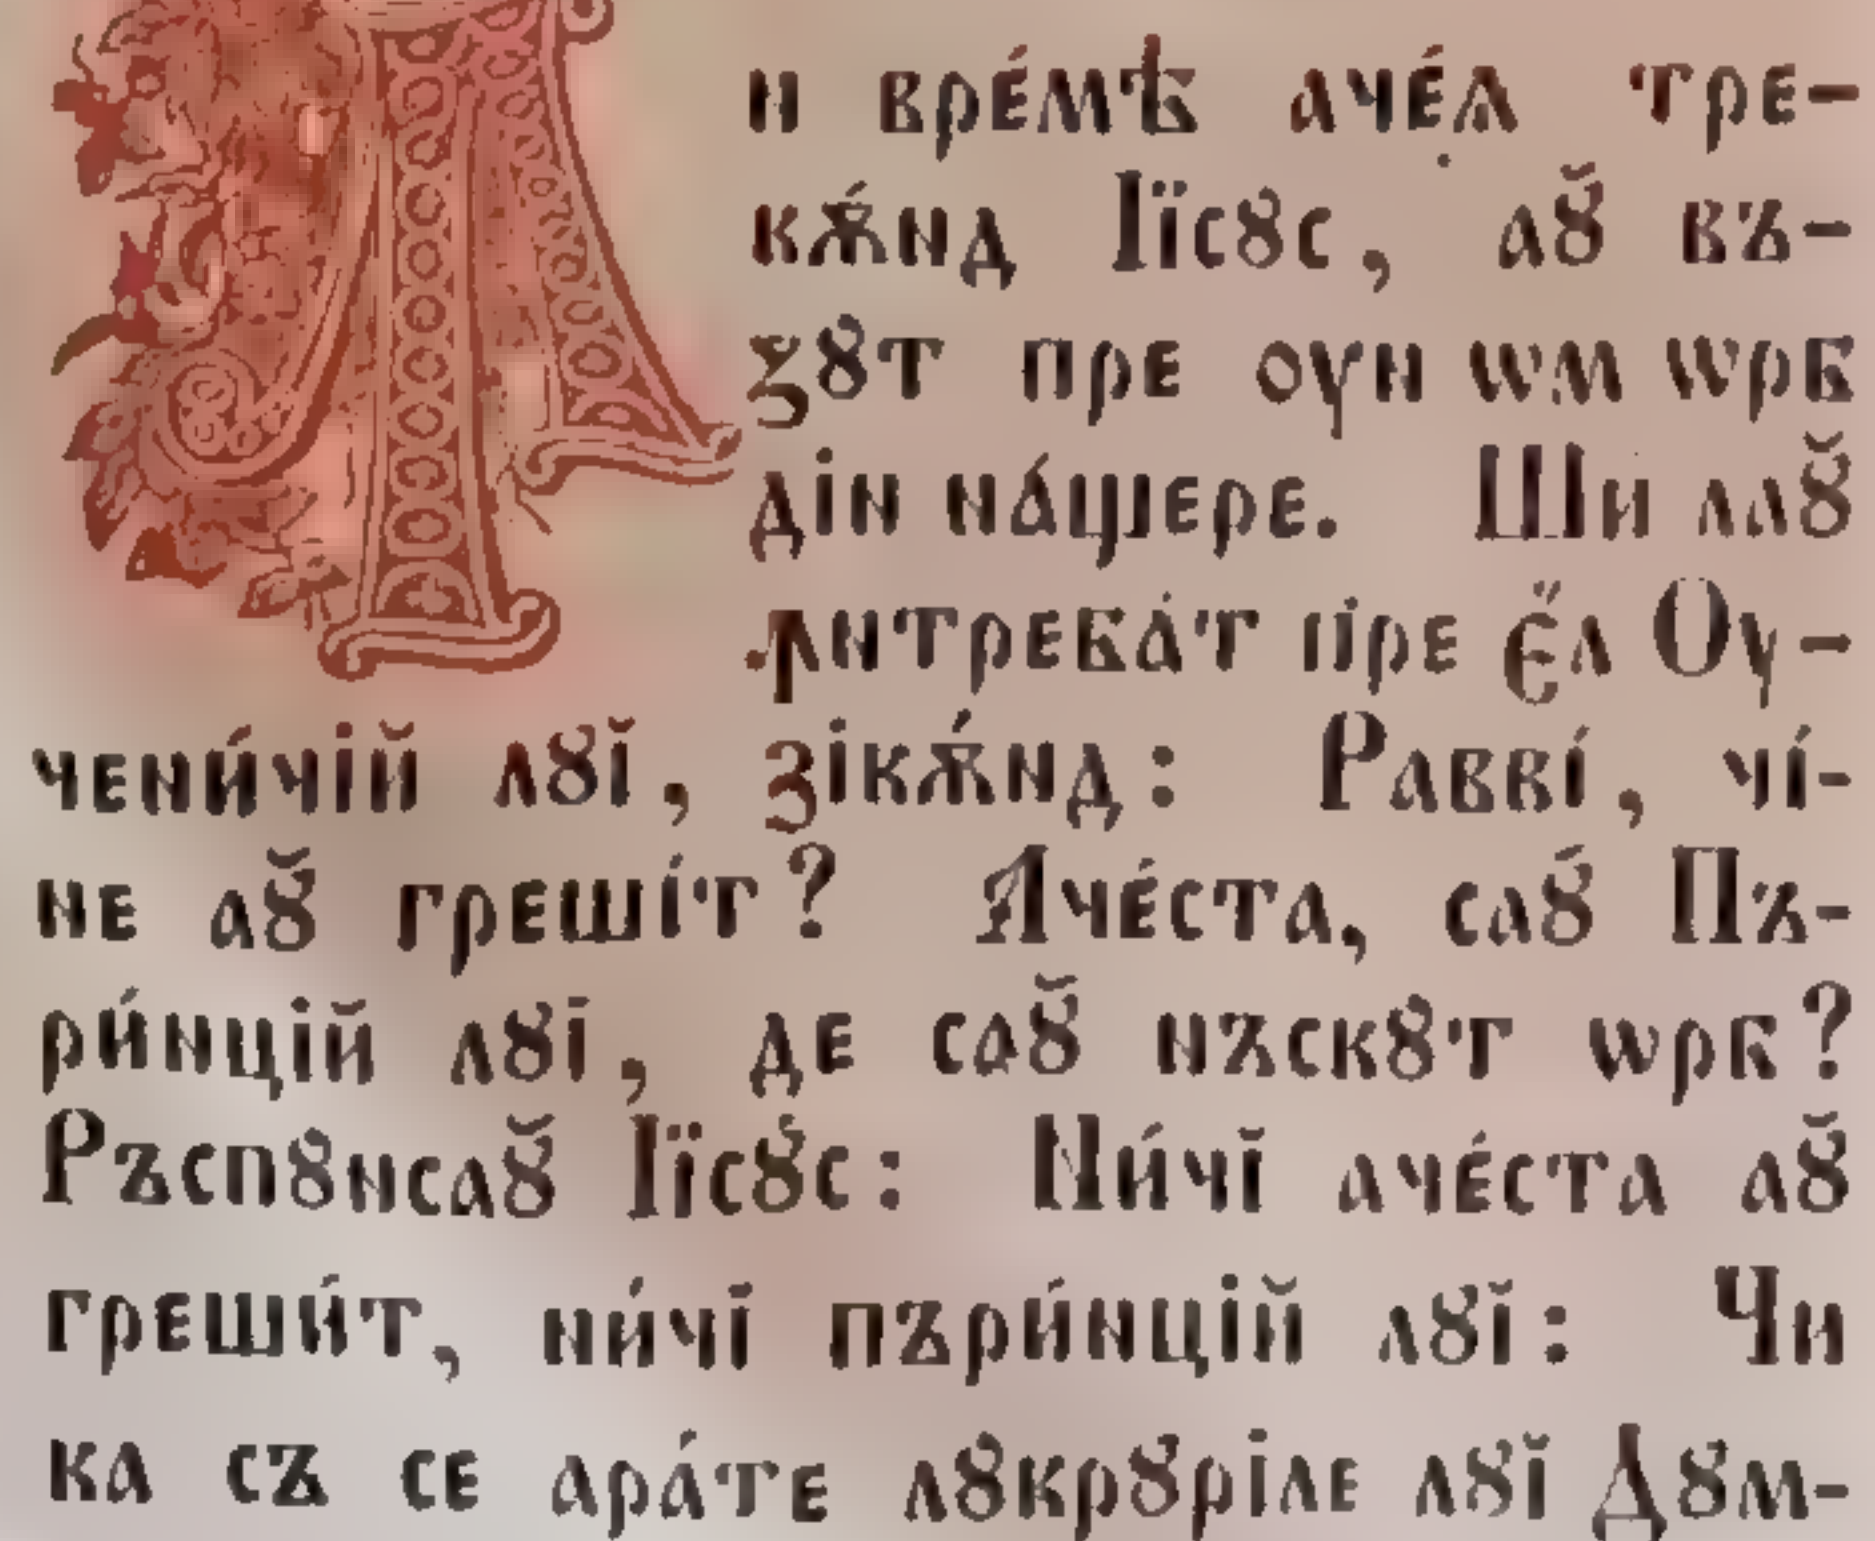 н вре́мѣ аче́ѧ тре-
кѫ́нд Іїсꙋс, аꙋ̆ въ-
ꙁꙋт пре оун ѡм ѡрб
дін на́щере. Ши лаꙋ̆
ꙟнтреба́т пре є̈л Оу-
чени́чїй лꙋĭ, ꙁікѫ́нд: Раввí, чí-
не аꙋ̆ грешíт? Аче́ста, саꙋ̆ Пъ-
ри́нцїй лꙋі, де саꙋ̆ нъскꙋт ѡрб?
Ръспꙋнсаꙋ̆ Іїсꙋс: Ни́чĭ аче́ста аꙋ̆
греши́т, ни́чĭ пъри́нцїй лꙋĭ: Чи
ка съ се ара́те лꙋкрꙋріле лꙋĭ Дꙋм-